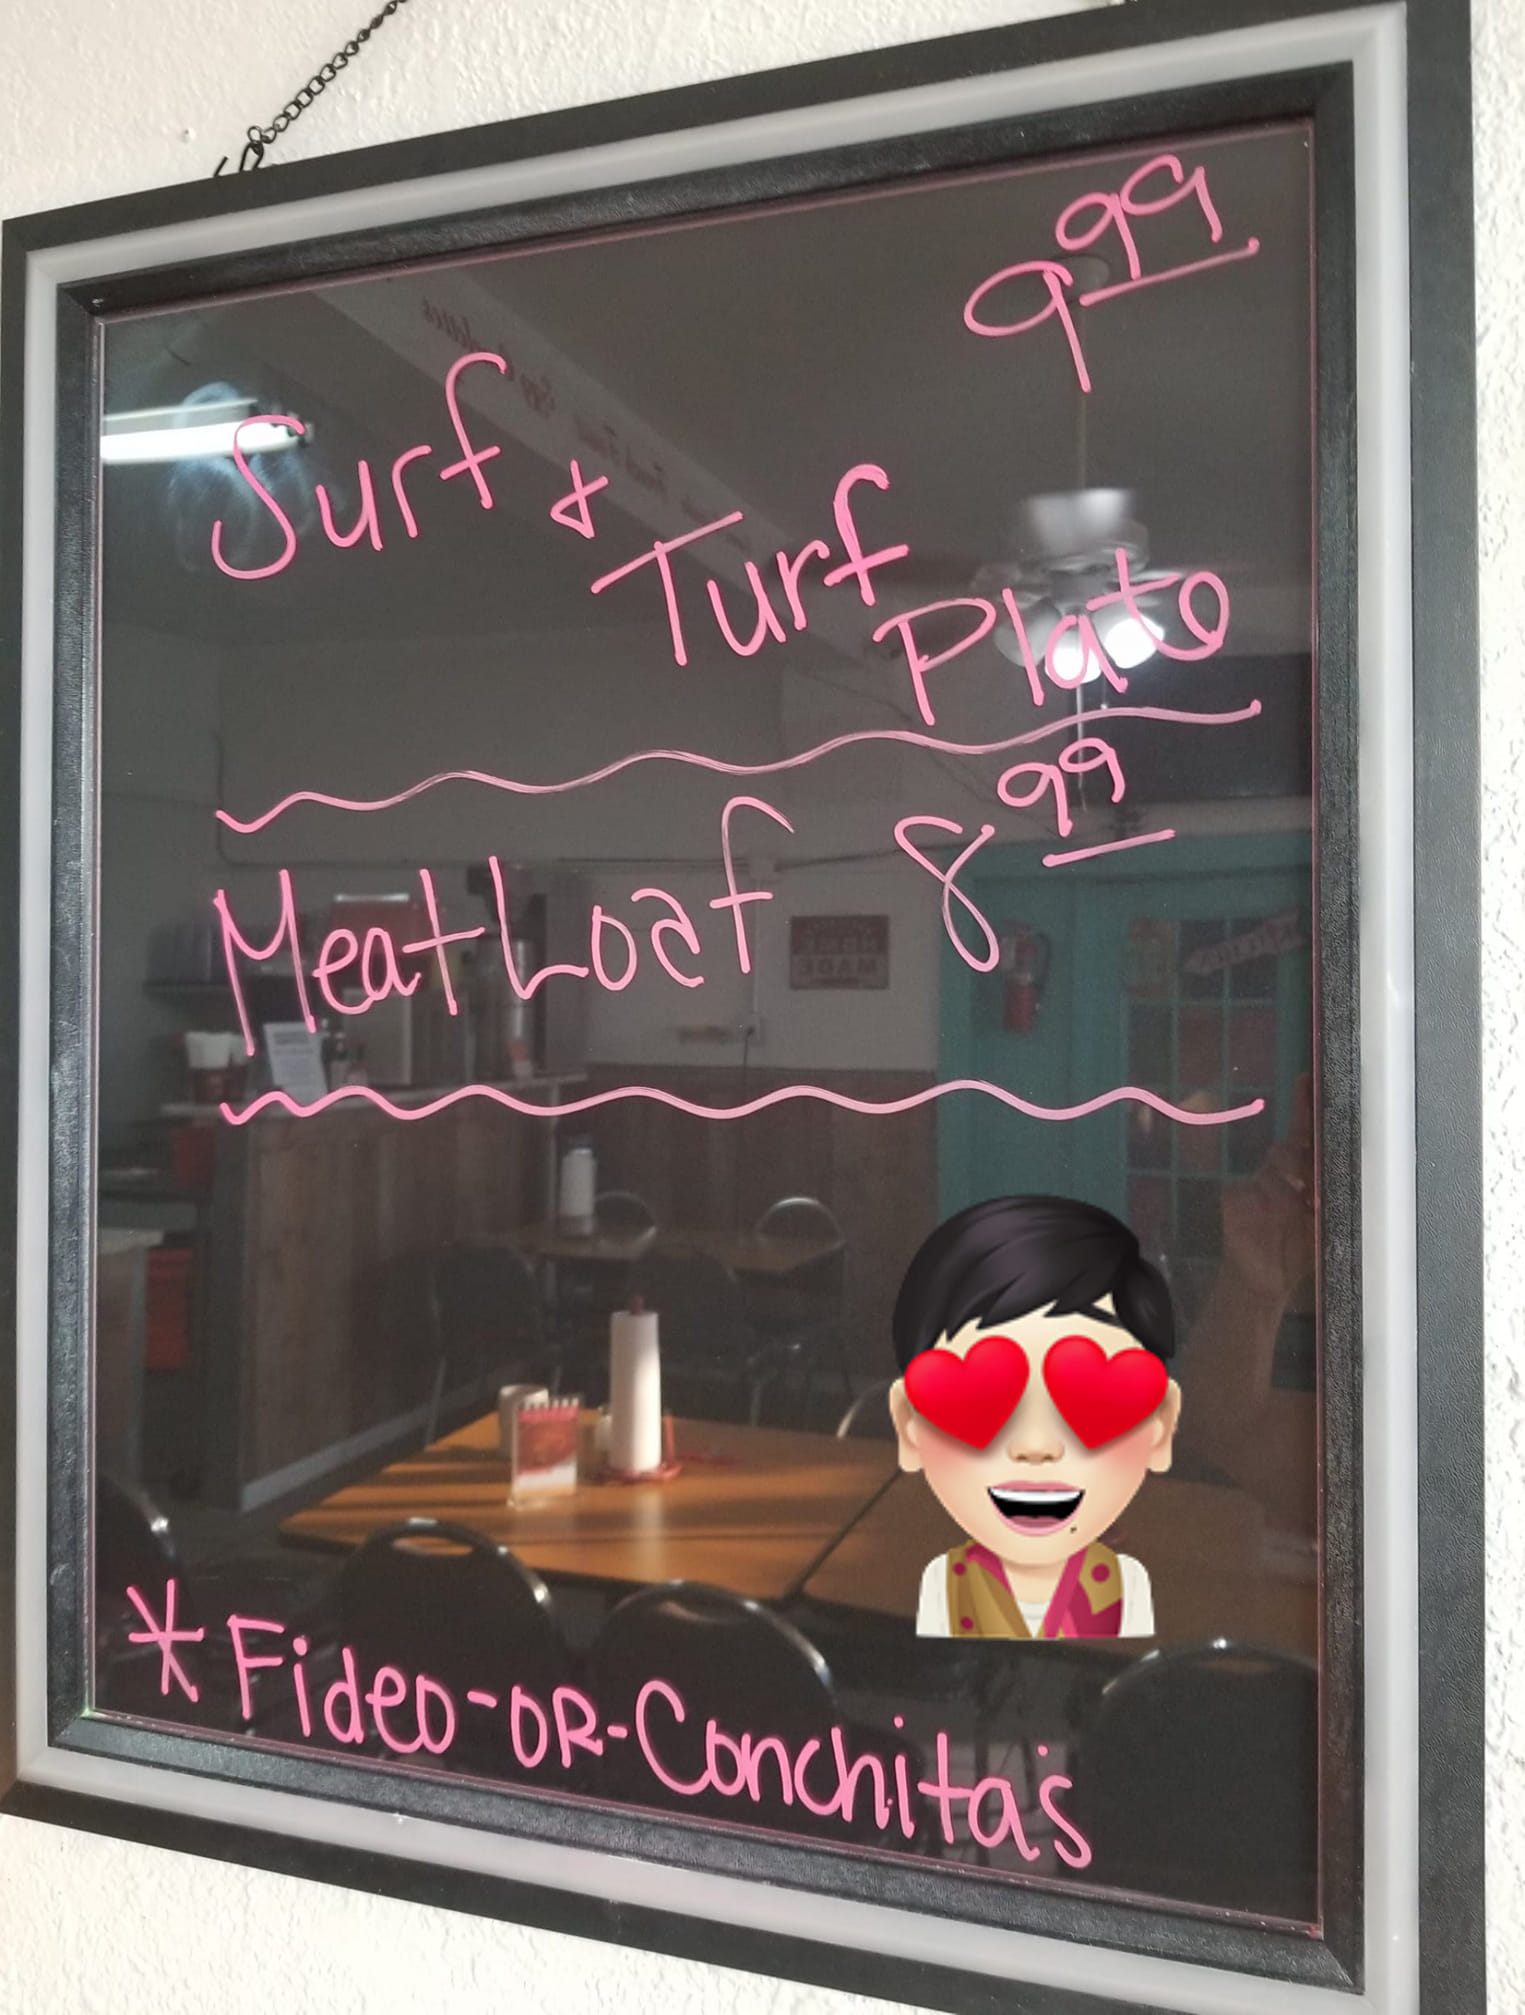 9 99
Surf &
Turf
Plate
Meat Loaf 8 99
* Fideo-OR-Conchitas
HOME
MADE